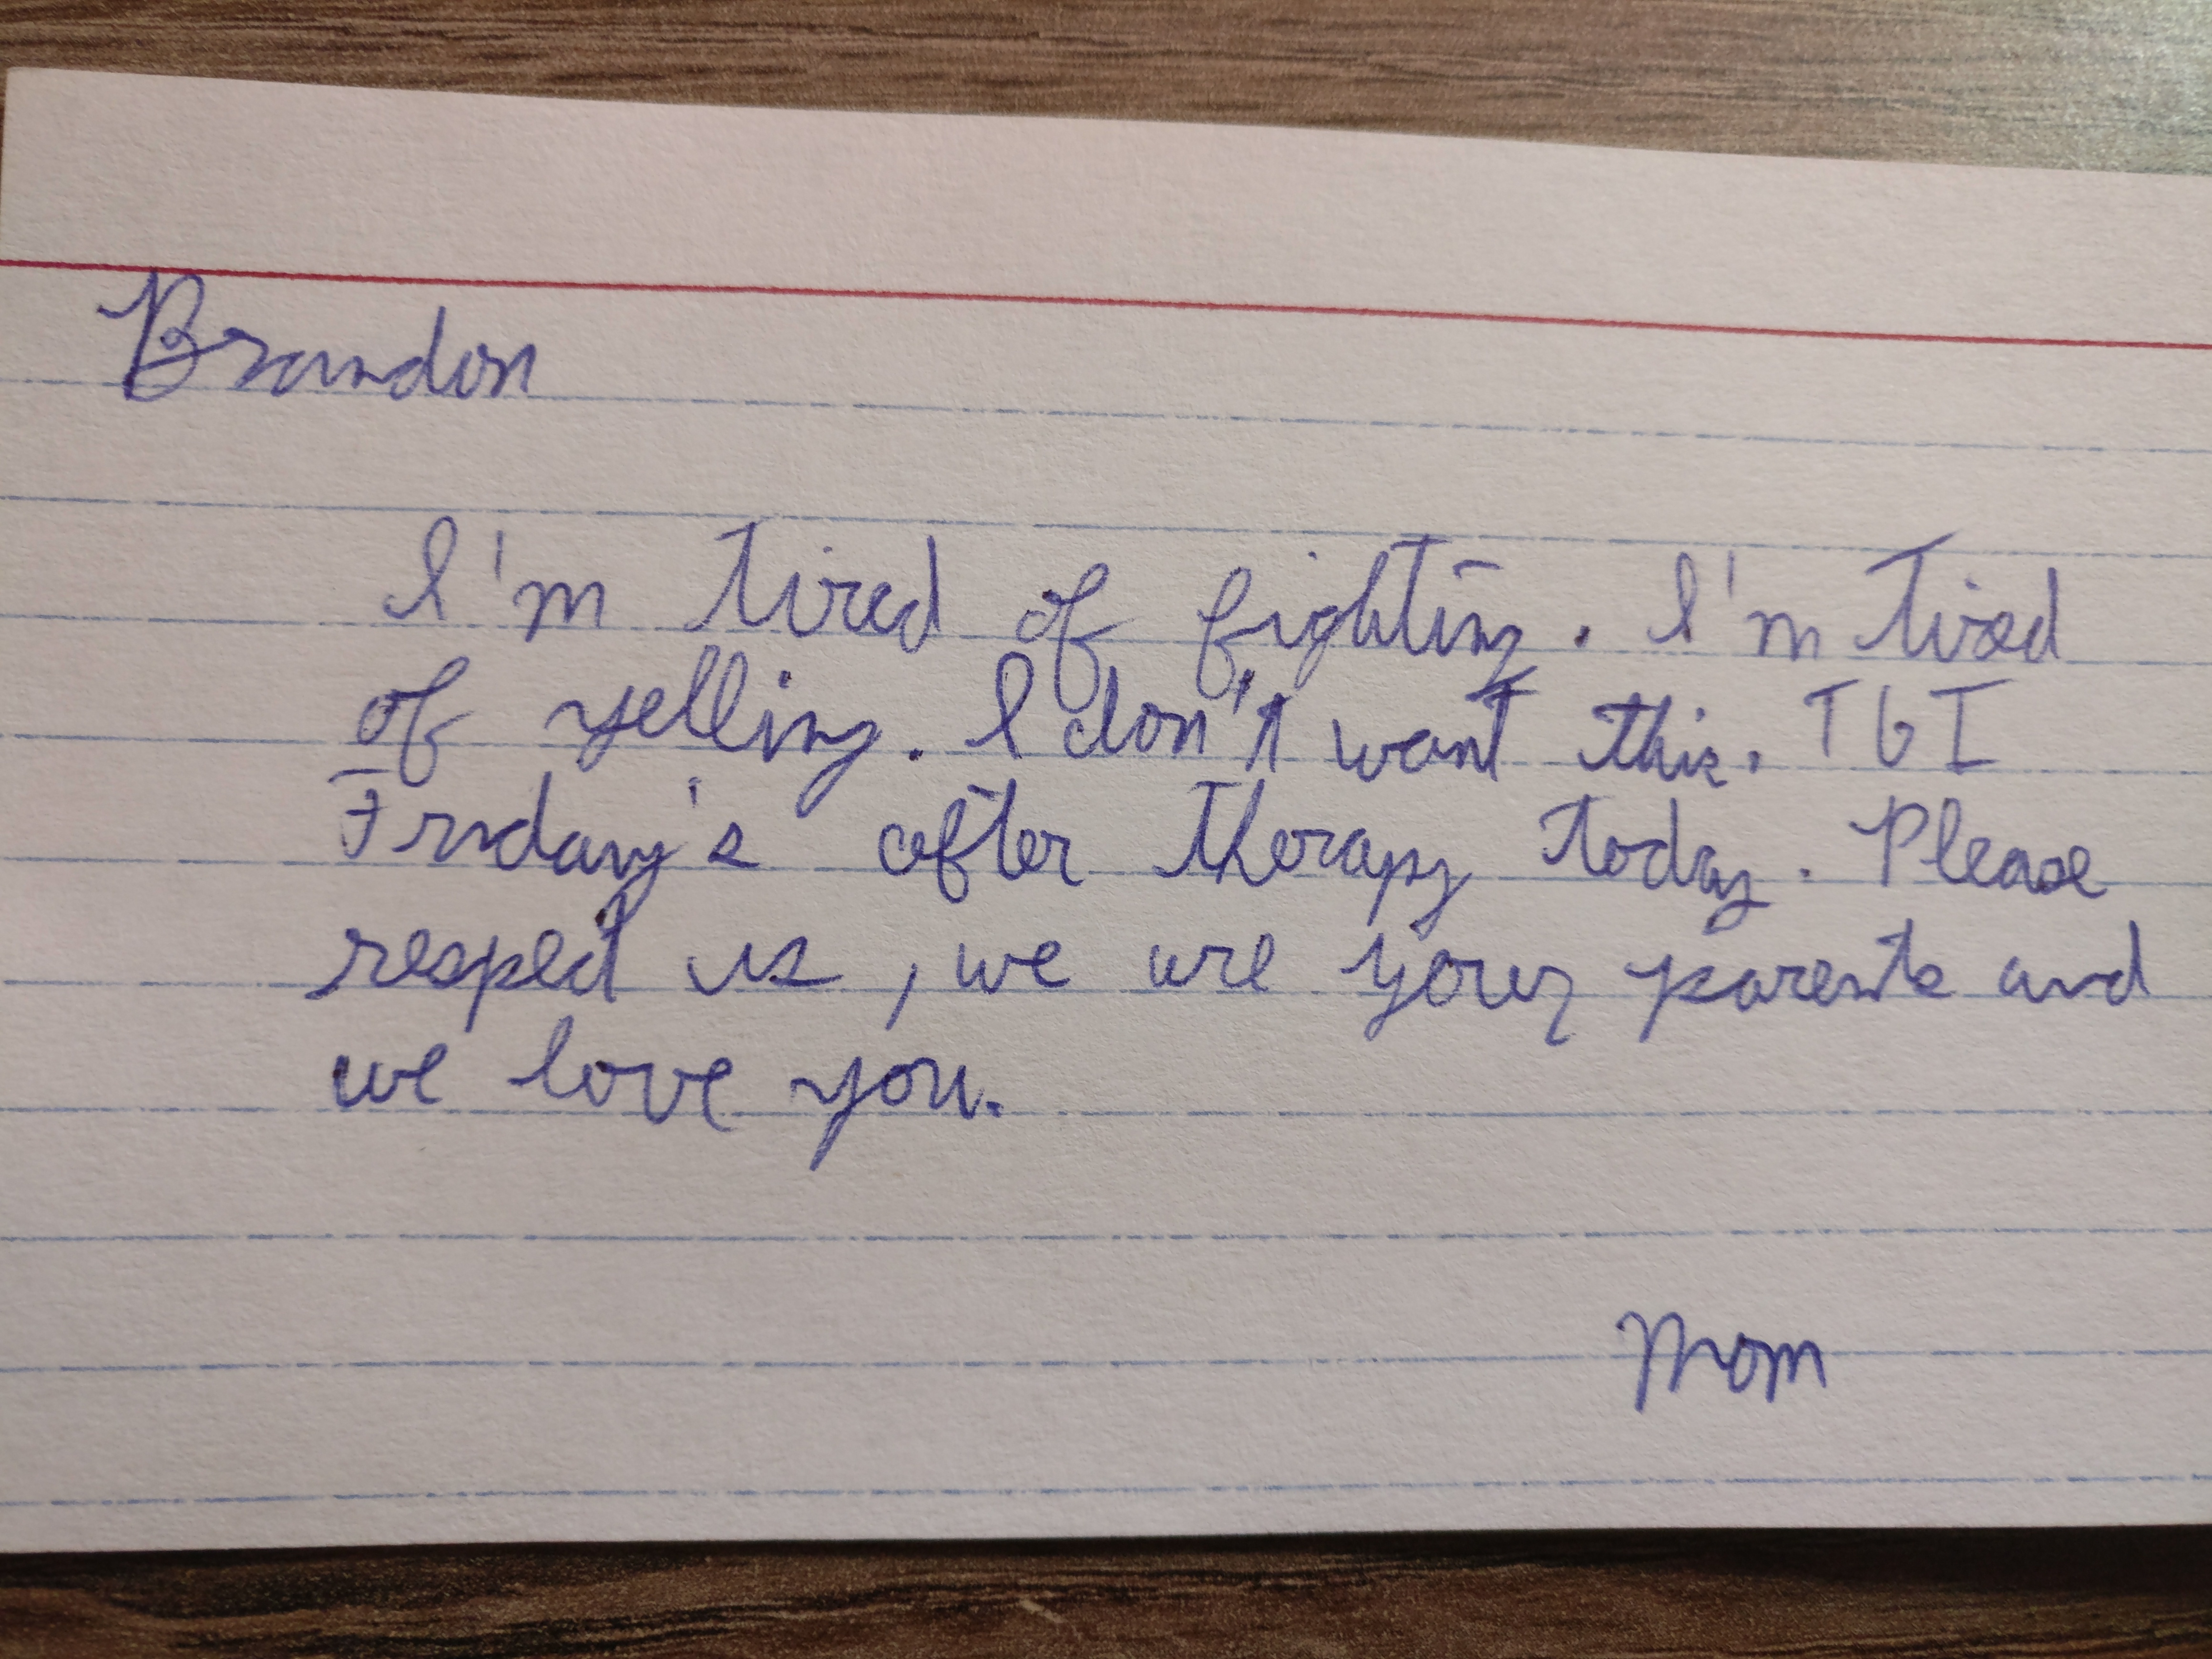 Brandon
I'm tired of fighting. I'm tired
of yelling. I don't want this. TGI
Friday's after therapy today. Please
respect us, we are your parents and
we love you.
Mom